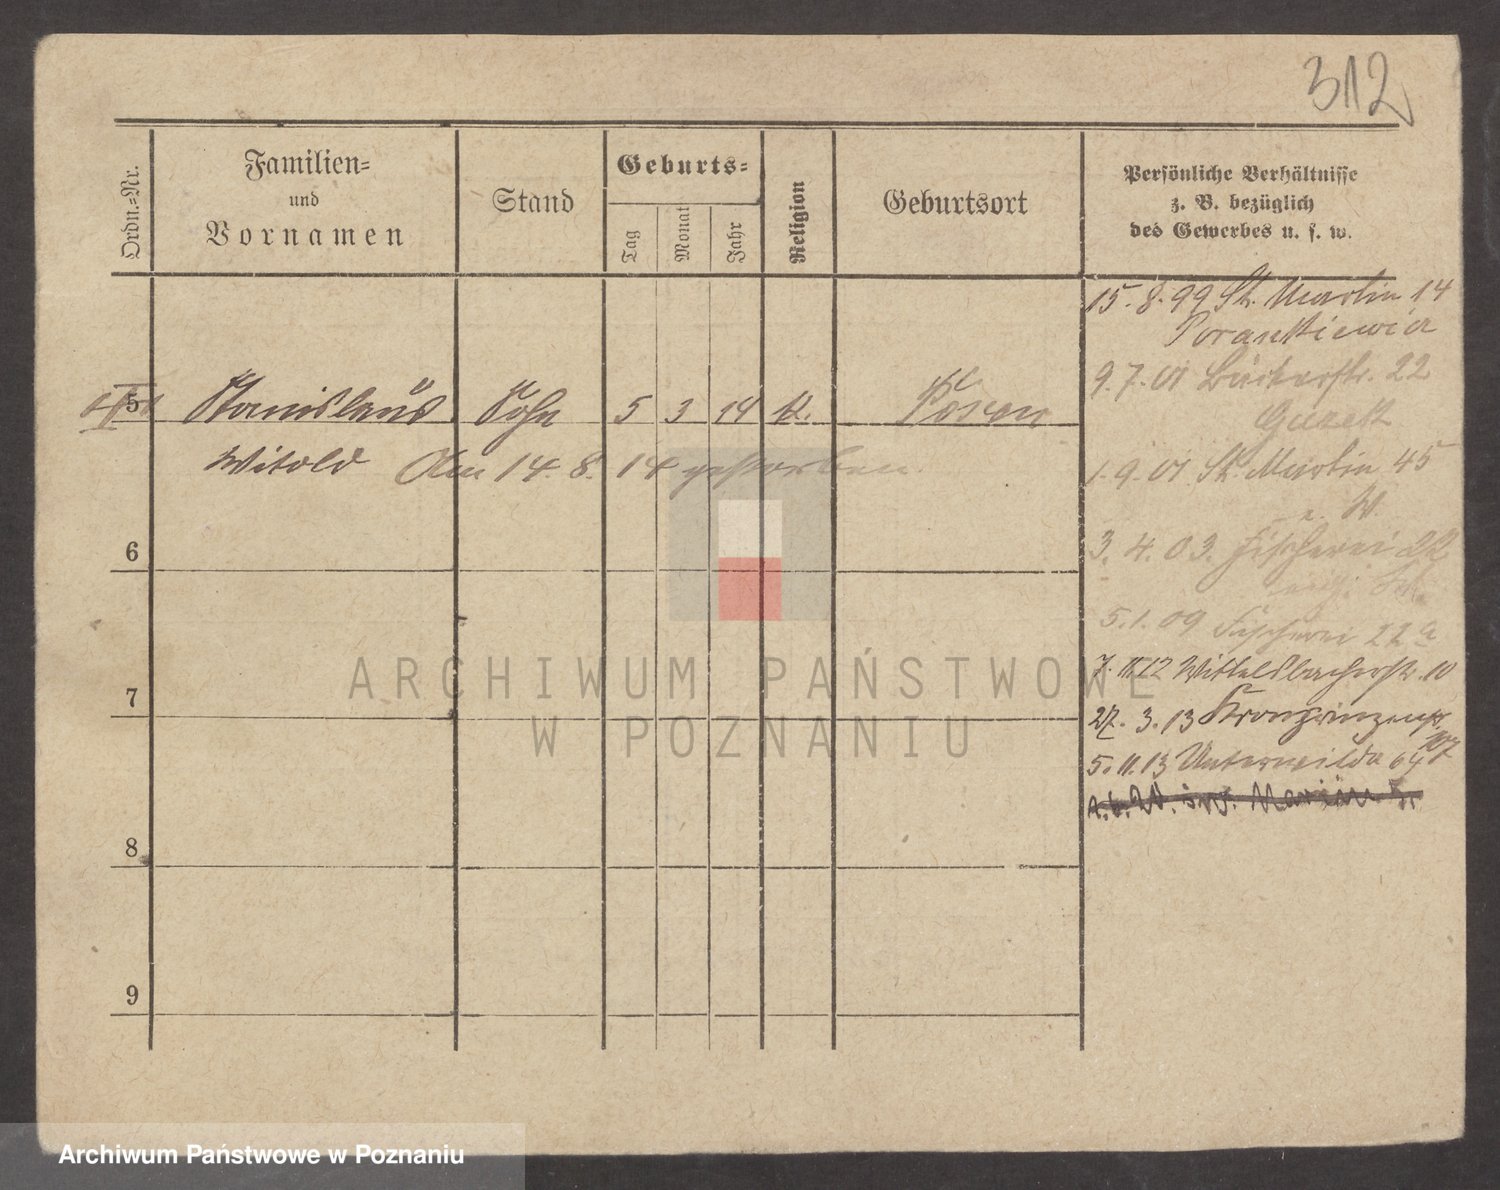 312
Ordn.=Nr.
Familien=
und
Vornamen
Stand
Geburts=
Tag
Monat
Jahr
Religion
Geburtsort
Persönliche Verhältnisse
z. B. bezüglich
des Gewerbes u. s. w.
15. 8. 99 St. Martin 14
Porankiewicz
9. 7. 01 Bäckerstr. 22
Guzek
1. 9. 01 St. Martin 45
3. 4. 03. Fischerei
5. 1. 09 Fischerei 22a
7. 11. 12 Wittelsbacherstr. 10
27. 3. 13 Kronprinzenstr
107
5. 11. 13 Unterwilda 69
5 Stanislaus Sohn 5 3 14 K. Posen
Witold Am 14. 8. 14 gestorben.
6
7
8
9
ARCHIWUM PAŃSTWOWE
W POZNANIU
Archiwum Państwowe w Poznaniu